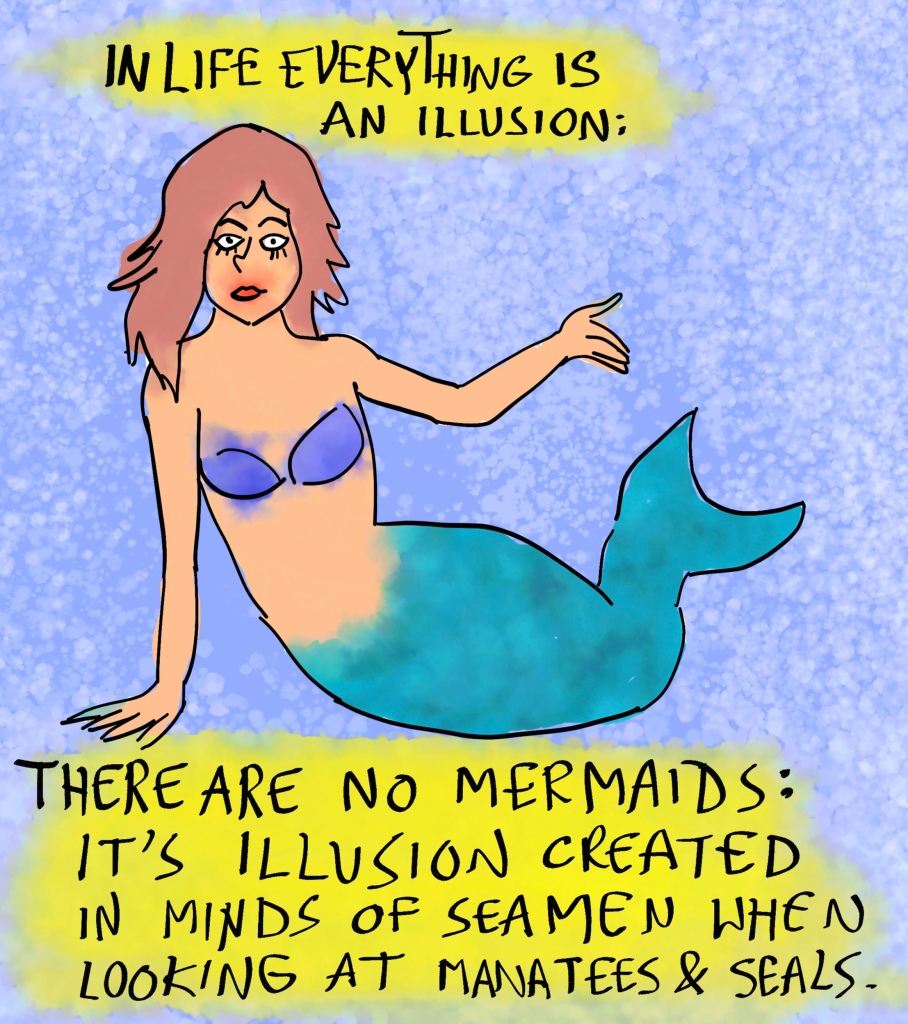 IN LIFE EVERYTHING IS
AN ILLUSION:
THERE ARE NO MERMAIDS:
IT'S ILLUSION CREATED
IN MINDS OF SEAMEN WHEN
LOOKING AT MANATEES & SEALS.